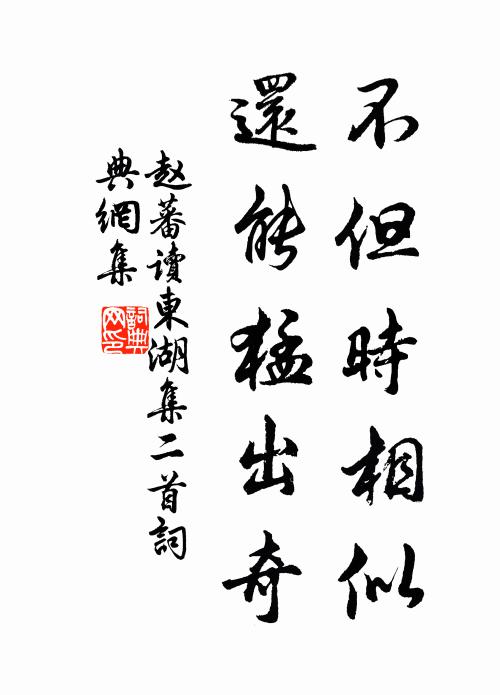 不但時相似
還能猛出奇
赵蕃讀東湖集二首詞
典網集
詞典
网印